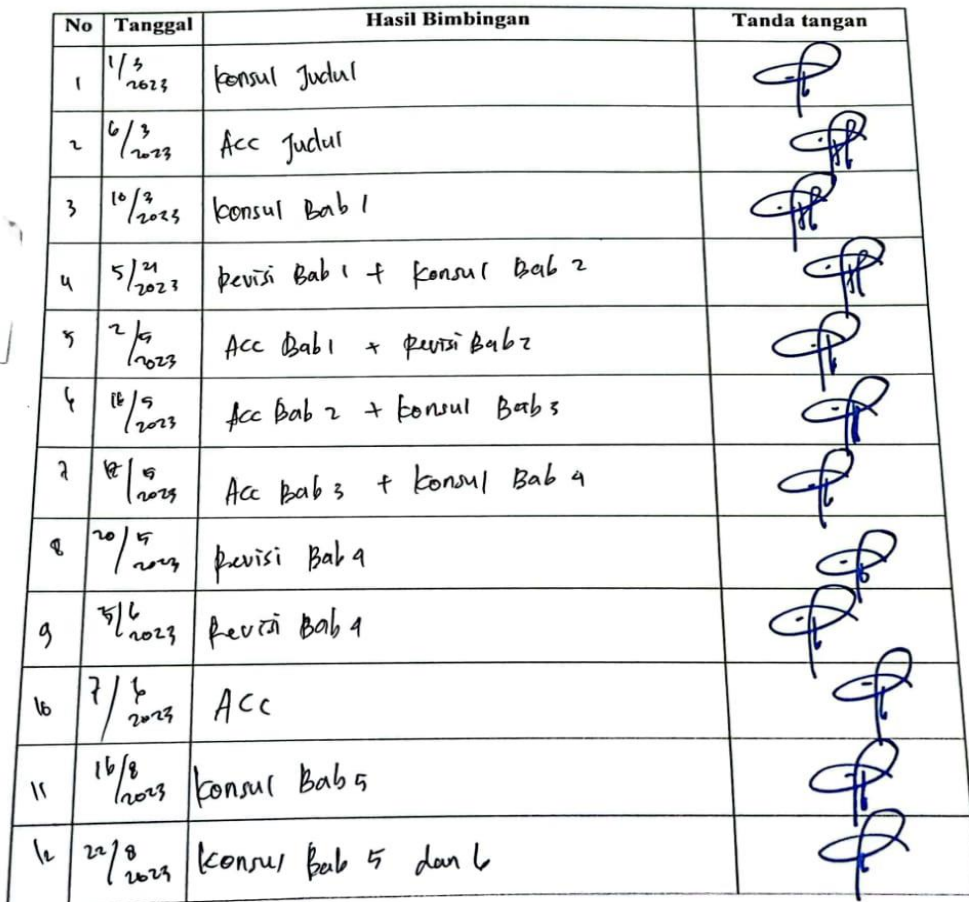 No Tanggal Hasil Bimbingan Tanda tangan
1 1/3 2023 Konsul Judul
2 6/3 2023 Acc Judul
3 10/3 2023 Konsul Bab 1
4 5/4 2023 Revisi Bab 1 + Konsul Bab 2
5 2/5 2023 Acc Bab 1 + Revisi Bab 2
6 16/5 2023 Acc Bab 2 + Konsul Bab 3
7 /5 2023 Acc Bab 3 + Konsul Bab 4
8 20/5 2023 Revisi Bab 4
9 5/6 2023 Revisi Bab 4
10 7/6 2023 ACC
11 16/8 2023 Konsul Bab 5
12 22/8 2023 Konsul Bab 5 dan 6